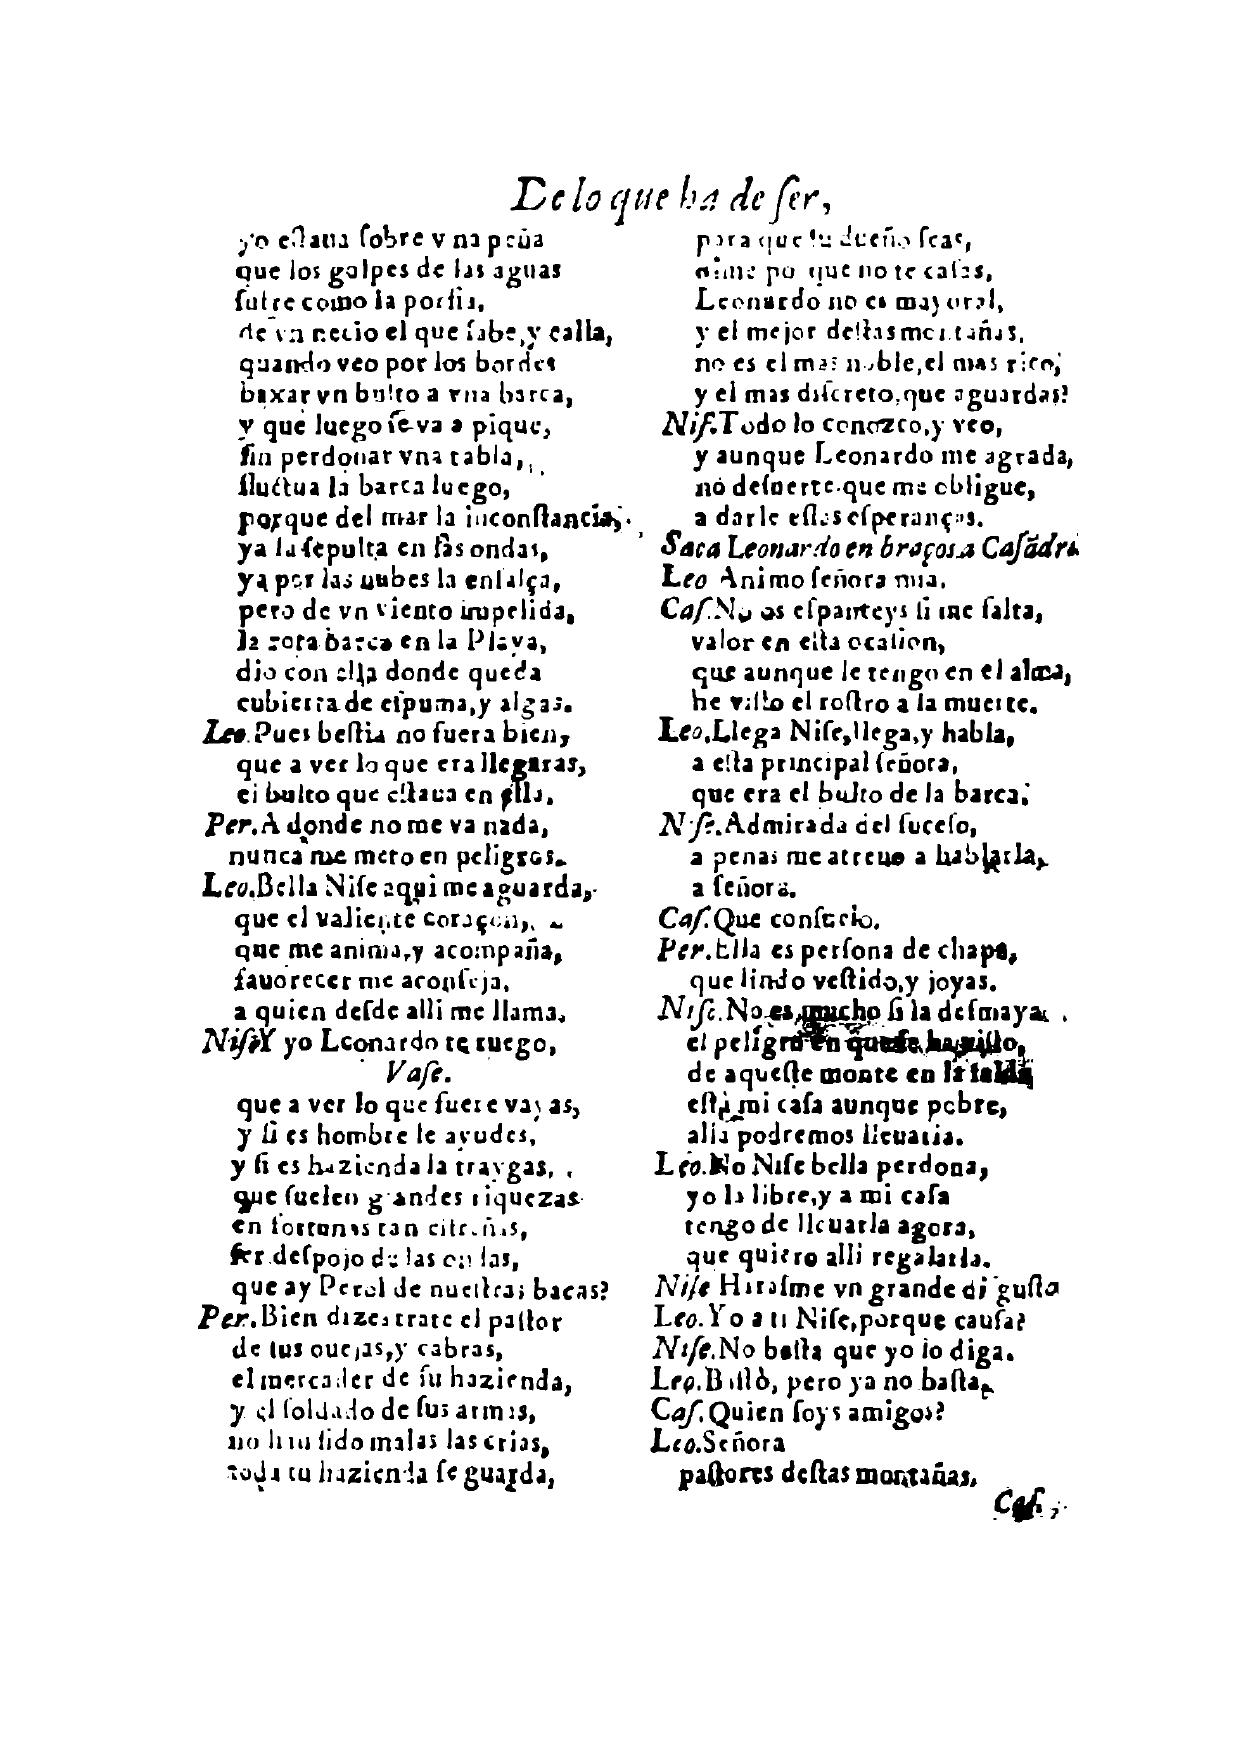 De lo que ha de ſer,
yo eſtaua ſobre vna peña
que los golpes de las aguas
ſufre como la porfia,
de vn necio el que ſabe, y calla,
quando veo por los bordes
baxar vn bulto a vna barca,
y que luego ſe va a pique,
ſin perdonar vna tabla,
fluctua la barca luego,
porque del mar la inconſtancia,
ya la ſepulta en ſus ondas,
ya por las nubes la enſalça,
pero de vn viento impelida,
la rota barca en la Playa,
dio con ella donde queda
cubierta de eſpuma, y algas.
Leo. Pues beſtia no fuera bien,
que a ver lo que era llegaras,
el bulto que eſtaua en ella.
Per. A donde no me va nada,
nunca me meto en peligros.
Leo. Bella Niſe aqui me aguarda,
que el valiente coraçon,
que me anima, y acompaña,
fauorecer me aconſeja,
a quien deſde alli me llama.
Niſe Y yo Leonardo te ruego,
Vaſe.
que a ver lo que fuere vayas,
y ſi es hombre le ayudes,
y ſi es hazienda la traygas,
que ſuelen grandes riquezas
en fortunas tan eſtrañas,
ſer deſpojo de las ondas,
que ay Perol de nueſtras bacas?
Per. Bien dizes trate el paſtor
de ſus ouejas, y cabras,
el mercader de ſu hazienda,
y el ſoldado de ſus armas,
no han ſido malas las crias,
toda tu hazienda ſe guarda,
para que ſu dueño ſeas,
dime por que no te caſas,
Leonardo no es mayoral,
y el mejor deſtas montañas,
no es el mas noble, el mas rico,
y el mas diſcreto, que aguardas?
Niſ. Todo lo conozco, y veo,
y aunque Leonardo me agrada,
no deſuerte que me obligue,
a darle eſſas eſperanças.
Saca Leonardo en braços a Caſãdra
Leo Animo ſeñora mia.
Caſ. No os eſpanteys ſi me falta,
valor en eſta ocaſion,
que aunque le tengo en el alma,
he viſto el roſtro a la muerte.
Leo. Llega Niſe, llega, y habla,
a eſta principal ſeñora,
que era el bulto de la barca.
Niſe. Admirada del ſuceſo,
a penas me atreuo a hablarla,
a ſeñora.
Caſ. Que conſuelo.
Per. Ella es perſona de chapa,
que lindo veſtido, y joyas.
Niſe. No es mucho ſi la deſmaya
el peligro en que ſe ha viſto,
de aqueſte monte en la falda
eſtà mi caſa aunque pobre,
alla podremos lleuarla.
Leo. No Niſe bella perdona,
yo la libre, y a mi caſa
tengo de lleuarla agora,
que quiero alli regalarla.
Niſe Haraſme vn grande diſguſto
Leo. Yo a ti Niſe, porque cauſa?
Niſe. No baſta que yo lo diga.
Leo. Baſtò, pero ya no baſta,
Caſ. Quien ſoys amigos?
Leo. Señora
paſtores deſtas montañas.
Caſ.